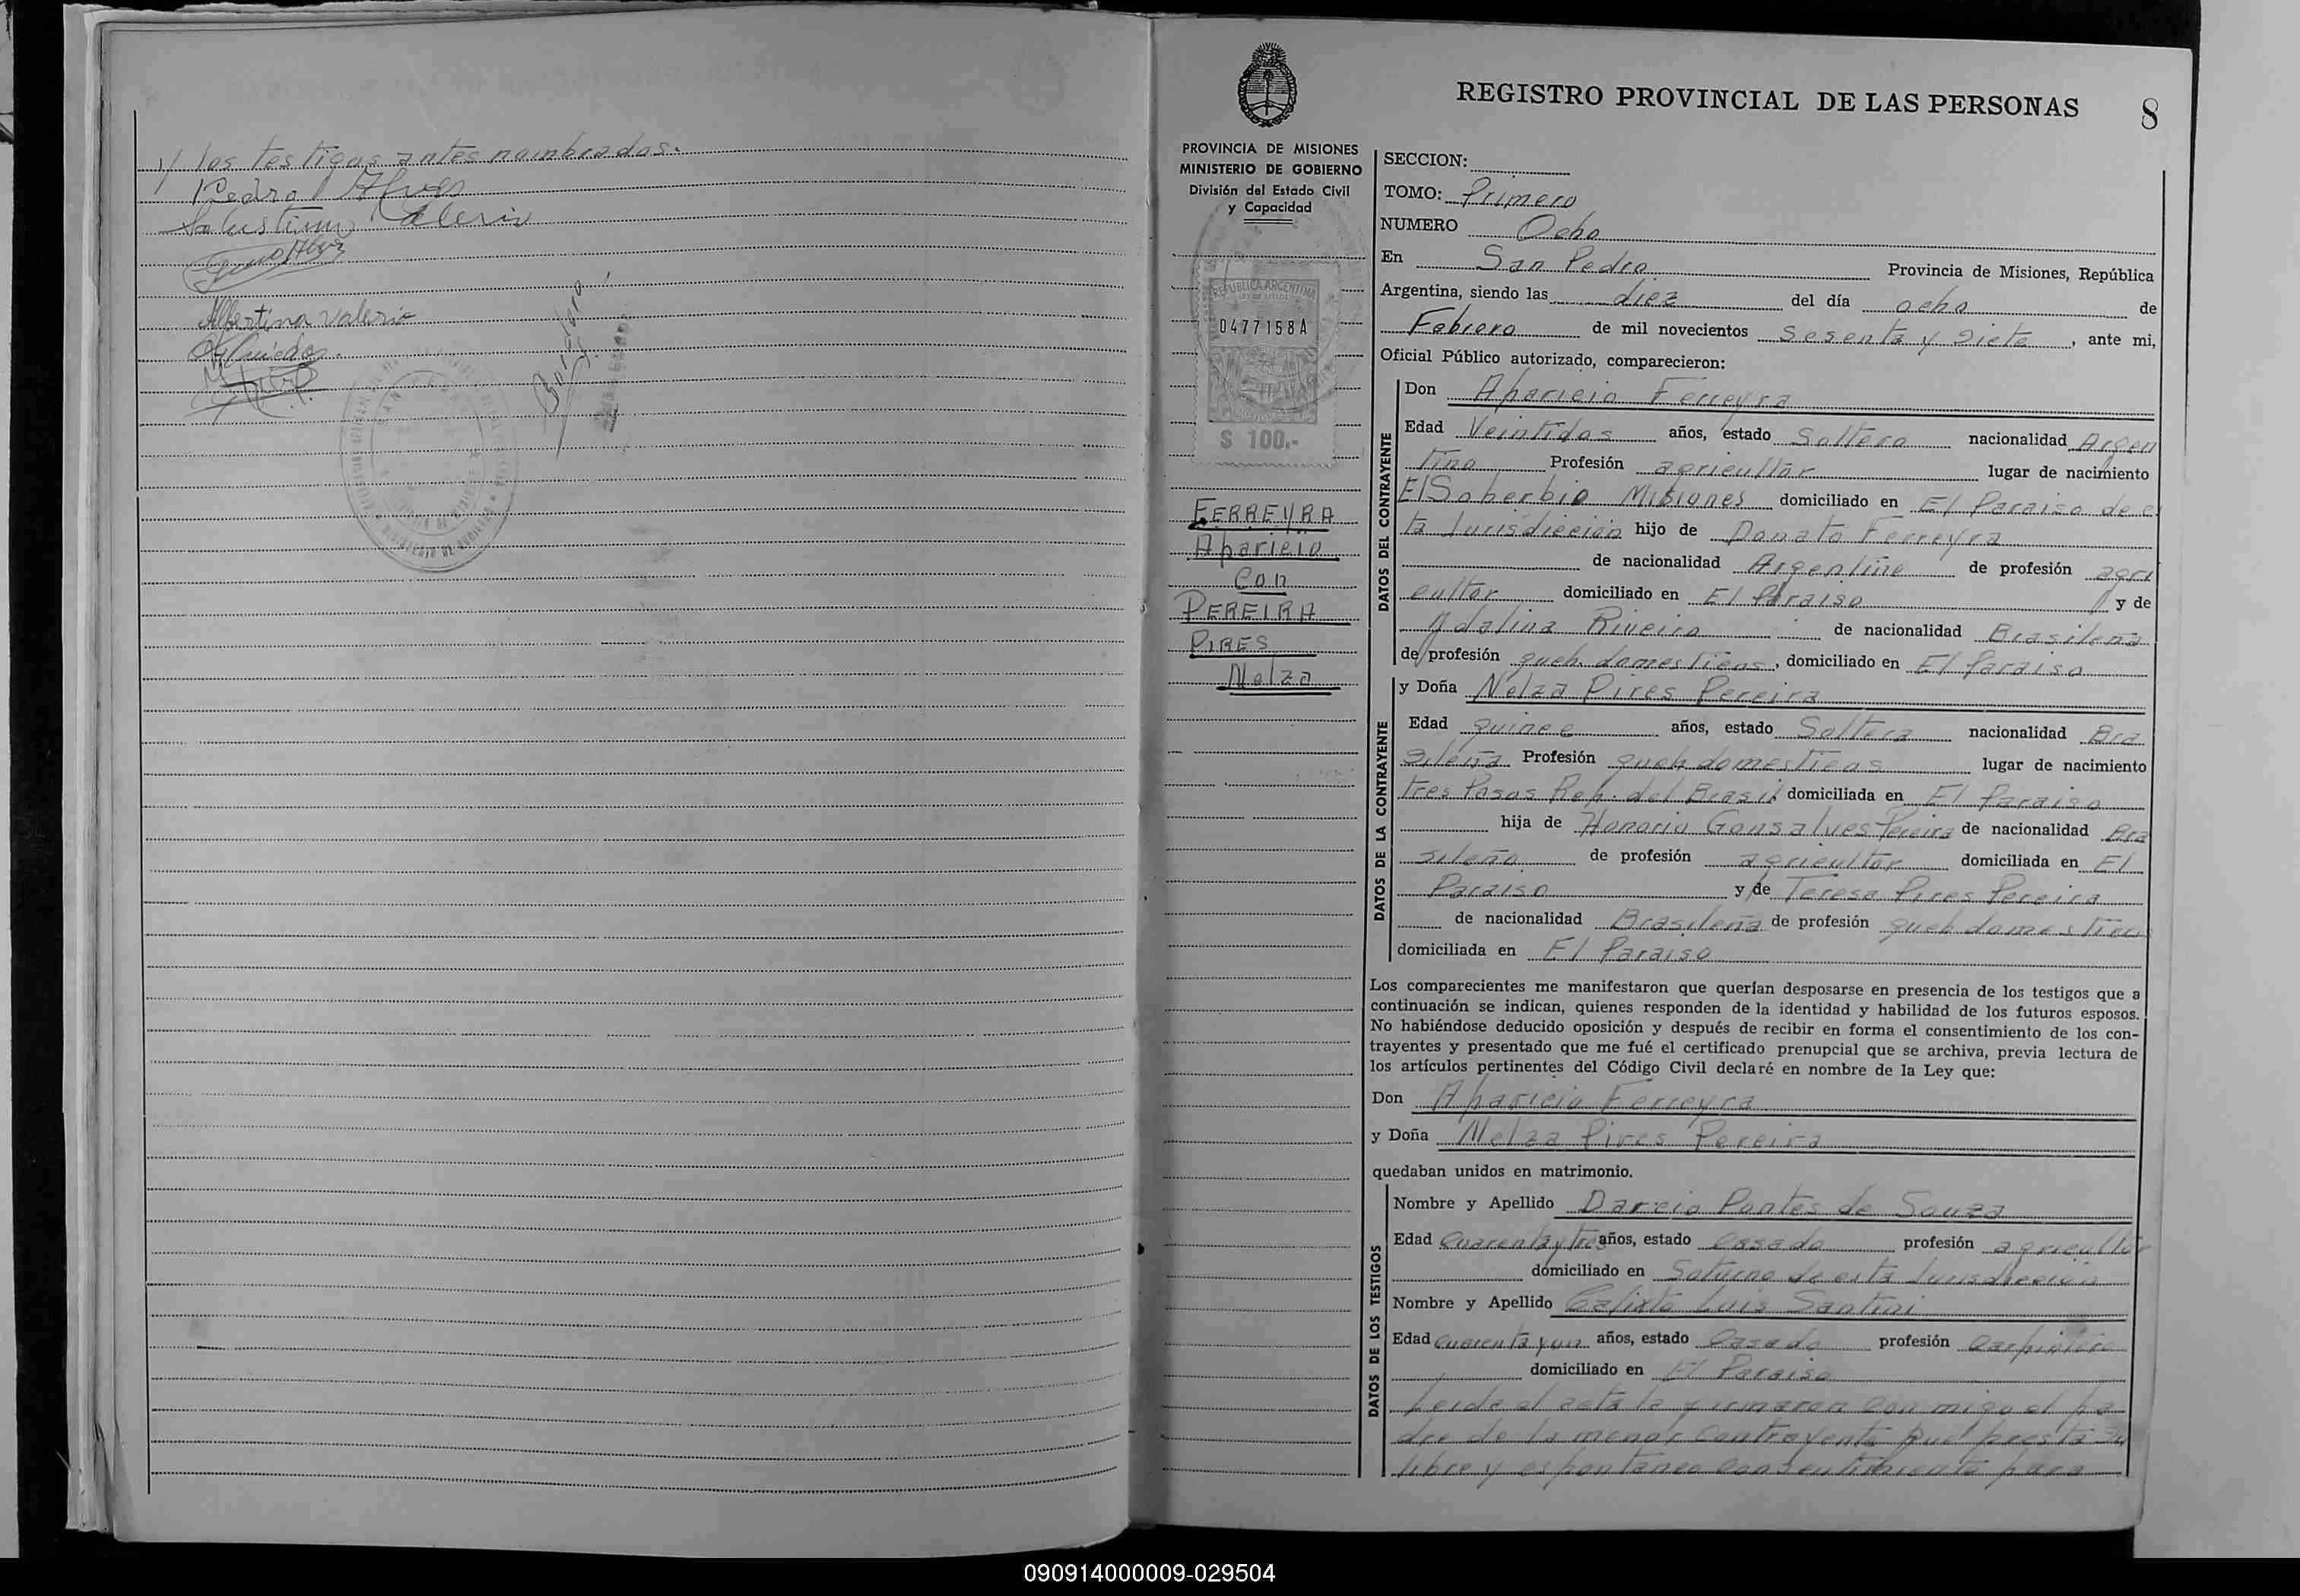 y los testigos antes nombrados.
Pedro Alves
Salustiano Valerio
Albertina Valerio
REGISTRO PROVINCIAL DE LAS PERSONAS 8
PROVINCIA DE MISIONES
MINISTERIO DE GOBIERNO
División del Estado Civil
y Capacidad
REPUBLICA ARGENTINA
0477158A
$ 100.-
FERREYRA
Aparicio
Con
PEREIRA
PIRES
Nelza
SECCION:
TOMO: Primero
NUMERO Ocho
En San Pedro Provincia de Misiones, República
Argentina, siendo las diez del día ocho de
Febrero de mil novecientos Sesenta y Siete, ante mi,
Oficial Público autorizado, comparecieron:
DATOS DEL CONTRAYENTE
Don Aparicio Ferreyra
Edad Veintidos años, estado Soltero nacionalidad Argen
tino Profesión agricultor lugar de nacimiento
El Soberbio Misiones domiciliado en El Paraiso de es
ta Jurisdicción hijo de Donato Ferreyra
de nacionalidad Argentino de profesión agri
cultor domiciliado en El Paraiso y de
Ydalina Riveiro de nacionalidad Brasileña
de profesión queh. domesticos, domiciliado en El Paraiso
DATOS DE LA CONTRAYENTE
y Doña Nelza Pires Pereira
Edad quince años, estado Soltera nacionalidad Bra
sileña Profesión queh domesticos lugar de nacimiento
Tres Pasos Rep. del Brasil domiciliada en El Paraiso
hija de Honorio Gonsalves Pereira de nacionalidad Bra
sileño de profesión agricultor domiciliada en El
Paraiso y de Teresa Pires Pereira
de nacionalidad Brasileña de profesión queh domesticos
domiciliada en El Paraiso
Los comparecientes me manifestaron que querían desposarse en presencia de los testigos que a
continuación se indican, quienes responden de la identidad y habilidad de los futuros esposos.
No habiéndose deducido oposición y después de recibir en forma el consentimiento de los con-
trayentes y presentado que me fué el certificado prenupcial que se archiva, previa lectura de
los artículos pertinentes del Código Civil declaré en nombre de la Ley que:
Don Aparicio Ferreyra
y Doña Nelza Pires Pereira
quedaban unidos en matrimonio.
DATOS DE LOS TESTIGOS
Nombre y Apellido Darcio Pontes de Souza
Edad Cuarenta y tres años, estado Casado profesión agricultor
domiciliado en Saturno de esta Jurisdicción
Nombre y Apellido Calixto Luis Santini
Edad Cuarenta y un años, estado Casado profesión Carpintero
domiciliado en El Paraiso
Leida el acta la firmaron con migo el pa
dre de la menor Contrayente que presta su
libre y espontaneo consentimiento para
090914000009-029504